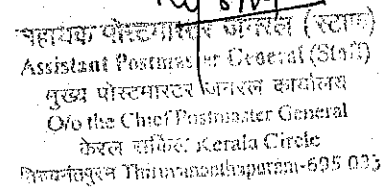 सहायक पोस्टमास्टर जनरल (स्टाफ)
Assistant Postmaster General (Staff)
मुख्य पोस्टमास्टर जनरल कार्यालय
O/o the Chief Postmaster General
केरल सर्किल Kerala Circle
Thiruvananthapuram-695 033